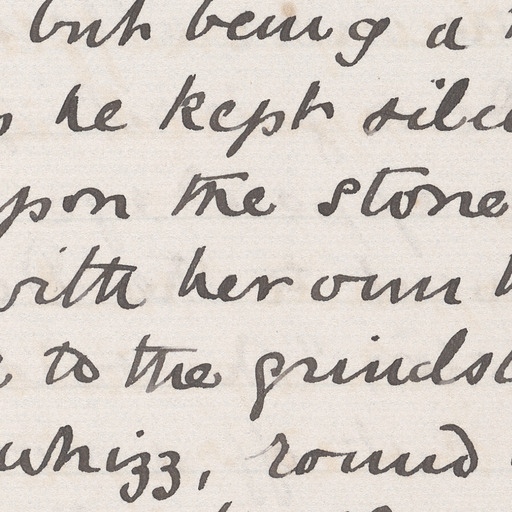 but being a
he kept
upon the stone
with her own
to the
whizz, round